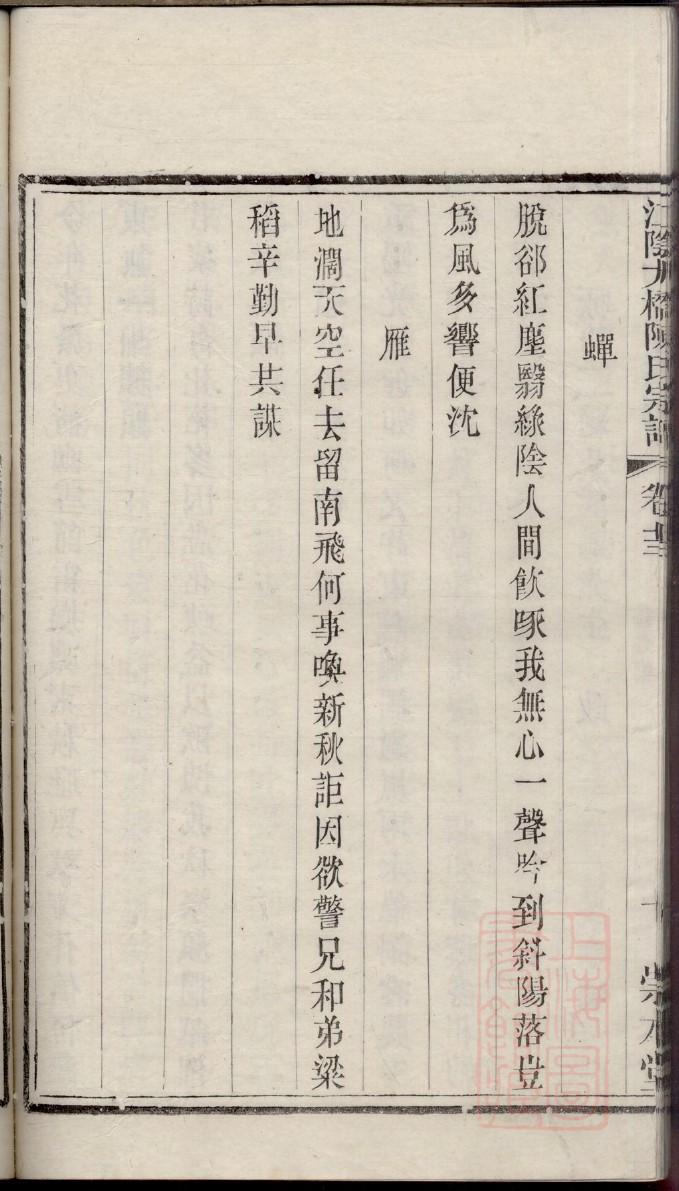 江陰九橋陳氏宗譜 卷廿三 十 崇本堂
蟬
脫郤紅塵翳綠陰人間飮啄我無心一聲吟到斜陽落豈
爲風多響便沈
雁
地濶天空任去留南飛何事喚新秋詎因欲警兄和弟粱
稻辛勤早共謀
上海圖